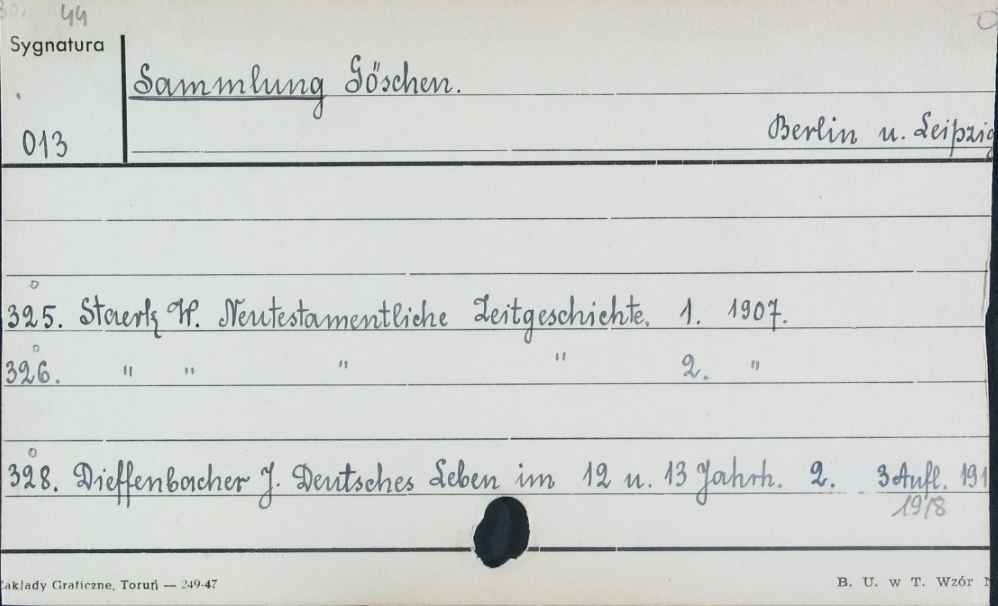 44
Sygnatura
Sammlung Göschen.
013
Berlin u. Leipzig
325. Staerk W. Neutestamentliche Zeitgeschichte. 1. 1907.
326. " " " " 2. "
328. Dieffenbacher J. Deutsches Leben im 12 u. 13 Jahrh. 2. 3 Aufl. 191
1918
Zakłady Graficzne, Toruń — 249-47
B. U. w T. Wzór